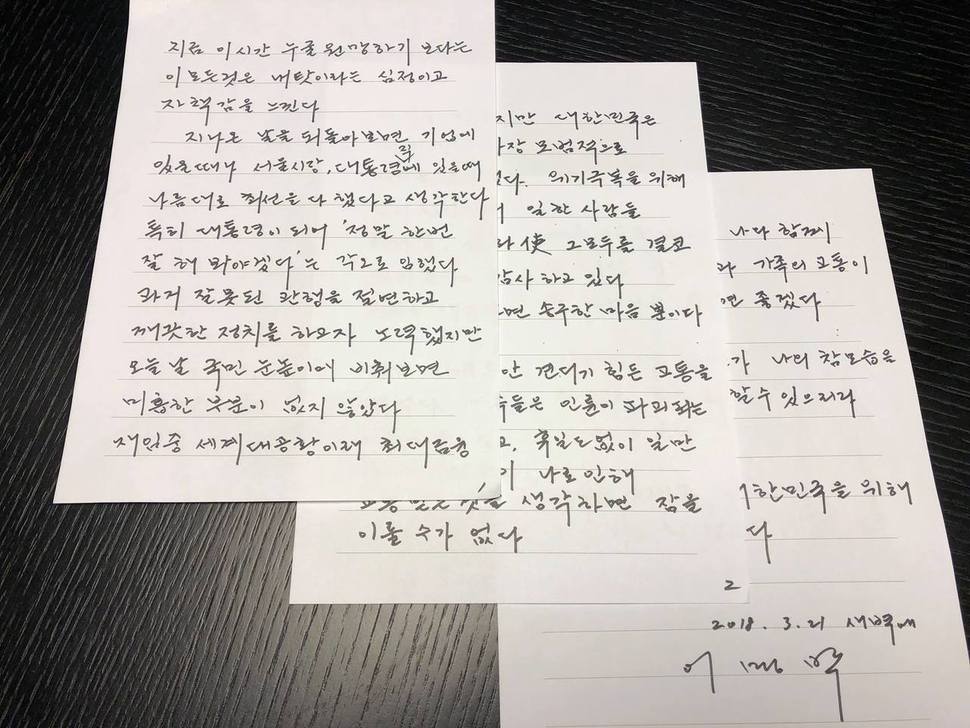 지금 이시간 누굴 원망하기 보다는
이 모든것은 내탓이라는 심정이고
자책감을 느낀다
지나온 날을 되돌아보면 기업에
있을때나 서울시장, 대통령직에 있을때
나름대로 최선을 다 했다고 생각한다
특히 대통령이 되어 '정말 한번
잘 해 봐야겠다'는 각오로 임했다
과거 잘못된 관행을 절연하고
깨끗한 정치를 하고자 노력했지만
오늘 날 국민 눈높이에 비춰보면
미흡한 부분이 없지 않았다
재임중 세계대공황이래 최대금융
지만 대한민국은
장 모범적으로
았다. 위기극복을 위해
일한 사람들
使 그모두를 결코
감사 하고 있다
면 송구한 마음 뿐이다
안 견디기 힘든 고통을
들은 인륜이 파괴되는
고, 휴일도 없이 일만
기 나로 인해
고통받는 것을 생각하면 잠을
이룰 수가 없다
2
나와 함께
과 가족의 고통이
면 좋겠다
가 나의 참모습을
할 수 있으리라
한민국을 위해
다
2018. 3. 21 새벽에
이명박